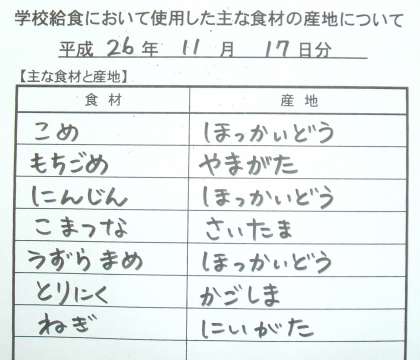 学校給食において使用した主な食材の産地について
平成 26 年 11 月 17 日分
【主な食材と産地】
食材 産地
こめ ほっかいどう
もちごめ やまがた
にんじん ほっかいどう
こまつな さいたま
うずらまめ ほっかいどう
とりにく かごしま
ねぎ にいがた